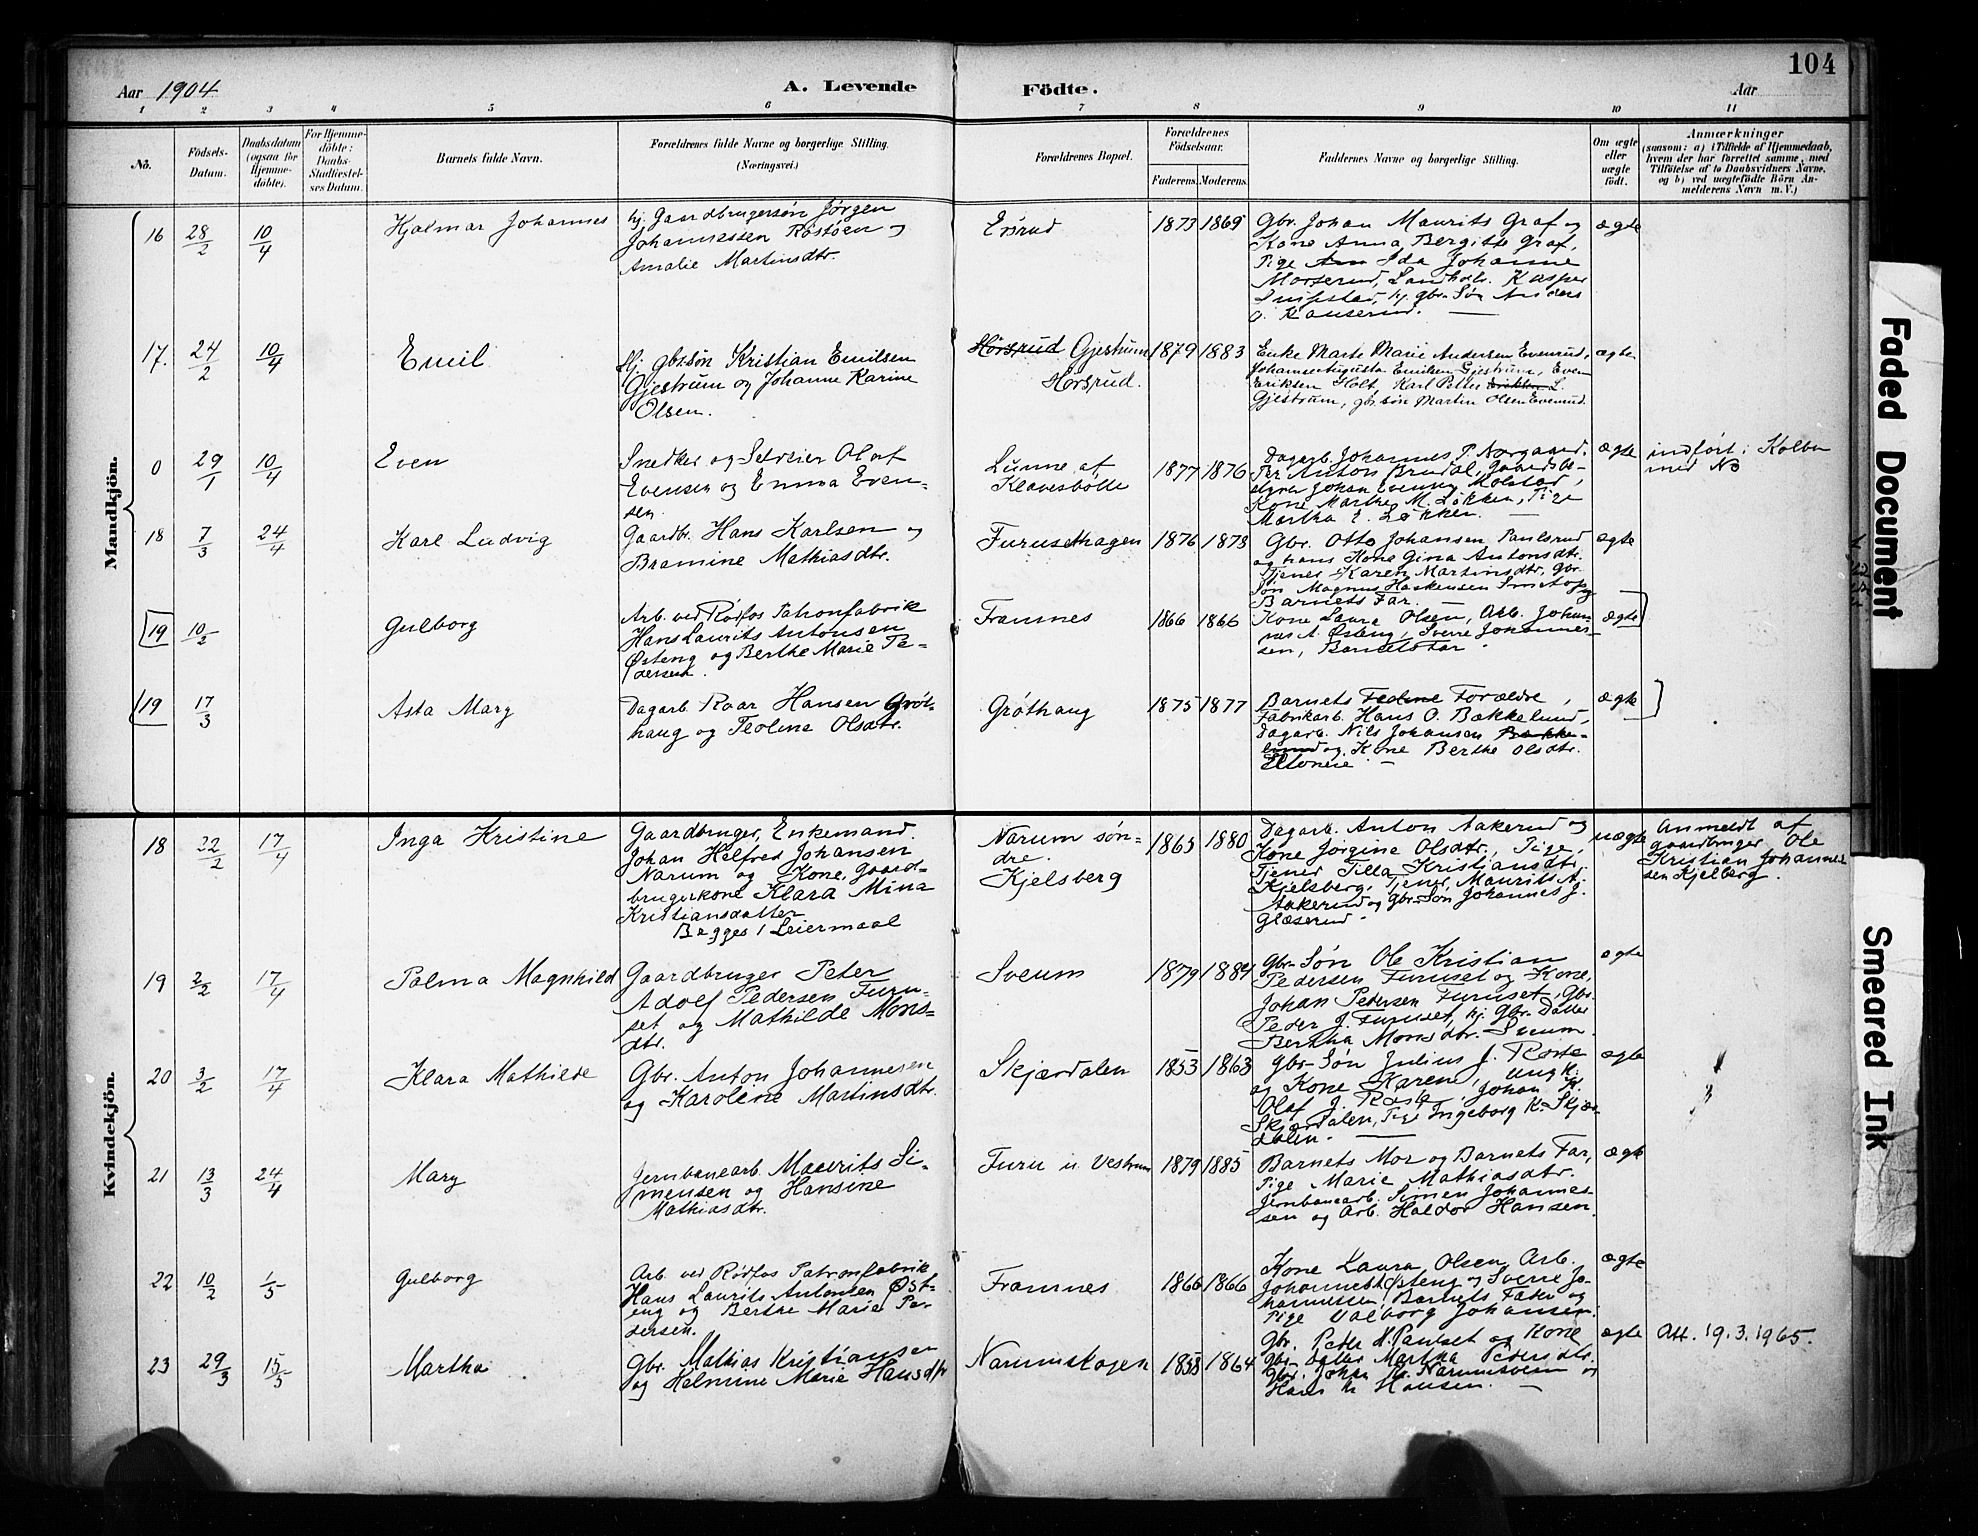 104
Aar 1904
A. Levende
Födte.
Aar
1 2 3 4 5 6 7 8 9 10 11
Nö.
Födsels-
Datum.
Daabsdatum
(ogsaa for
Hjemme-
döbte).
For Hjemme-
döbte:
Daabs-
Stadfæstel-
ses Datum.
Barnets fulde Navn.
Forældrenes fulde Navne og borgerlige Stilling.
(Næringsvei.)
Forældrenes Bopæl.
Forældrenes
Födselsaar.
Faderens.
Moderens.
Faddernes Navne og borgerlige Stilling.
Om ægte
eller
uægte
födt.
Anmærkninger
(saasom: a) i Tilfælde af Hjemmedaab,
hvem der har forrettet samme, med
Tilföielse af to Daabsvidners Navne,
og b) ved uægtefödte Börn An-
melderens Navn m. V.)
Mandkjön.
16 28/2 10/4 Hjalmar Johannes
hj. Gaardbrugersøn Jørgen
Johannessen Røstøen og
Amalie Martinsdtr.
Ersrud 1873 1869
Gbr. Johan Maurits Graf og
Kone Anna Bergitte Graf,
Pige Ida Johanne
Morserud, Landhdl. Kasper
hj. gbr. Søn Anders
ægte
17. 24/2 10/4 Emil
Hj. gbr.søn Kristian Emilsen
Gjestrum og Johanne Karine
Olsen.
Horsrud Gjestrum
Horsrud.
1879 1883
Enke Marte Marie Andersen Evenrud,
Johanne Augusta Emilsen Gjestrum, Even
Eriksen Holt, Karl Petter Eriksen L.
Gjestrum, gbr.søn Martin Olsen Evenrud.
ægte
0 29/1 10/4 Even
Snedker og Selveier Olaf
Evensen og Emma Even-
sen.
Lunne af
Klavesbölle
1877 1876
Dagarb. Johannes P. Norgaard,
Per Anton Brudal, Gaardbe-
styrer Johan Evensen Molstad,
Kone Marthe M. Løkken, Pige
Martha E. Løkken.
ægte
indført i Kolbu
med No
18 7/3 24/4 Karl Ludvig
Gaardbr. Hans Karlsen og
Bramine Mathiasdtr.
Furusethagen 1876 1878
Gbr. Otto Johansen Paulsrud
og hans Kone Gina Antonsdtr.
Tjener Karen Martinsdtr. Gbr.
Søn Magnus Haakensen
Barnets Far.
ægte
19 10/2 Gulborg
Arb. ved Rødfos Patronfabrik
Hans Laurits Antonsen
Østeng og Berthe Marie Pe-
dersen.
Framnes 1866 1866
Kone Laura Olsen, Arb. Johan-
nes A. Østeng, Sverre Johannes-
sen, Barnets Far.
ægte
19 17/3 Asta Mary
Dagarb. Roar Hansen Grøt-
haug og Teoline Olsdtr.
Grøthaug 1875 1877
Barnets Teoline Forældre,
Fabrikarb. Hans O. Bakkelund,
Dagarb. Nils Johansen Bakke-
lund og Kone Berthe Olsdtr.
Eltoneie.
ægte
Kvindekjön.
18 22/2 17/4 Inga Kristine
Gaardbruger, Enkemand.
Johan Helfred Johansen
Narum og Kone, Gaard-
brugerkone Klara Mina
Kristiansdatter
Begges 1 Leiermaal
Narum søn-
dre.
Kjelsberg
1865 1880
Dagarb. Anton Aakerud og
Kone Jørgine Olsdtr., Pige,
Tjener Tilla Kristiansdtr.
Kjelsberg, Tjener Maurits A.
Aakerud og Gbr.Søn Johannes J.
Glæserud.
uægte
Anmeldt af
gaardbruger Ole
Kristian Johannes-
sen Kjelberg.
19 2/2 17/4 Palma Magnhild
Gaardbruger Peter
Adolf Pedersen Furu-
set og Mathilde Mons-
dtr.
Sveum 1879 1884
Gbr-Søn Ole Kristian
Pedersen Furuset og Kone,
Johan Pedersen Furuset, Gbr.
Peder J. Furuset, hj. Gbr. Datter
Bertha Monsdtr. Sveum.
ægte
20 3/2 17/4 Klara Mathilde
Gbr. Anton Johannesen
og Karoline Martinsdtr.
Skjærdalen 1853 1863
Gbr-Søn Julius J. Roste
og Kone Karen, Ungk.
Olaf J. Roste, Johan K.
Skjærdalen, Pige Ingeborg K. Skjær-
dalen.
ægte
21 13/3 24/4 Mary
Jernbanearb. Maurits Si-
mensen og Hansine
Mathiasdtr.
Furu u. Vestrum 1879 1885
Barnets Mor og Barnets Far,
Pige Marie Mathiasdtr.
Jernbanearb. Simen Johannes-
sen og Arb. Haldor Hansen.
ægte
22 10/2 1/5 Gulborg
Arb. ved Rødfos Patronfabrik
Hans Laurits Antonsen Øst-
eng og Berthe Marie Pe-
dersen.
Framnes 1866 1866
Kone Laura Olsen, Arb.
Johannes Østeng og Sverre Jo-
hannessen, Barnets Fader og
Pige Valborg Johansen.
ægte
23 29/3 15/5 Martha
Gbr. Mathias Kristiansen
og Helmine Marie Hansdtr
Narumskogen 1858 1864
Gbr. Peder H. Paulset og Kone
Gbr-datter Martha Pedersdtr.
Gbr. Johan M. Narumsveen og
Hans M. Hansen.
ægte
Att. 19.3.1965.
Faded Document
Smeared Ink